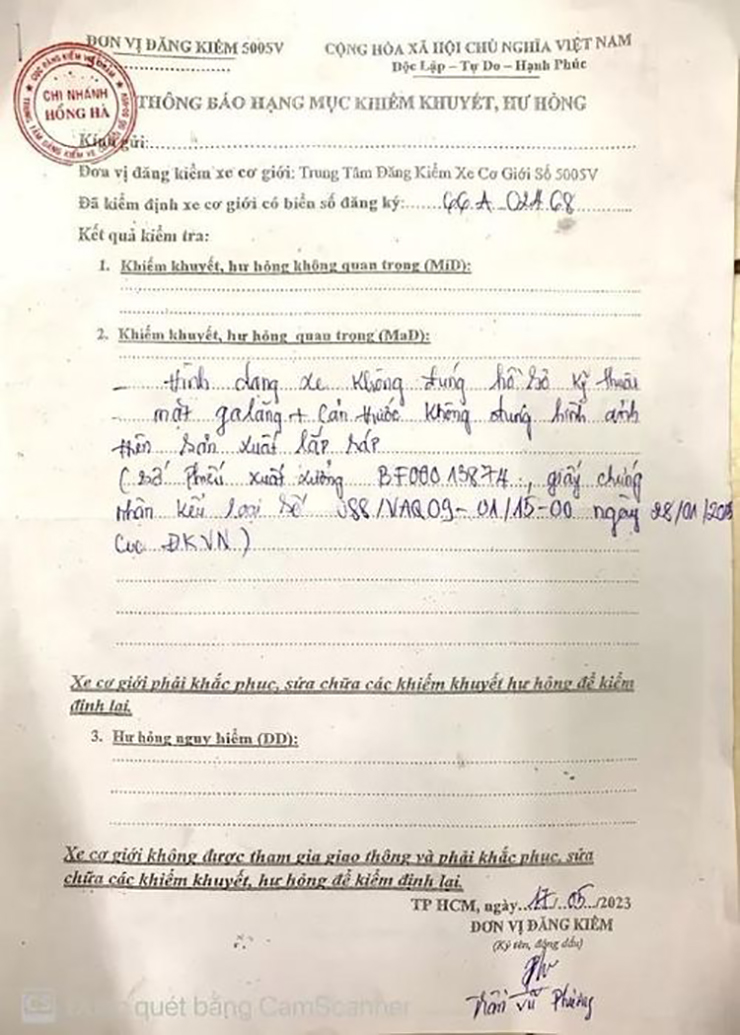 ĐƠN VỊ ĐĂNG KIỂM 5005V
CỘNG HÒA XÃ HỘI CHỦ NGHĨA VIỆT NAM
Độc Lập – Tự Do – Hạnh Phúc
CHI NHÁNH
HỒNG HÀ
THÔNG BÁO HẠNG MỤC KHIẾM KHUYẾT, HƯ HỎNG
Kính gửi:
Đơn vị đăng kiểm xe cơ giới: Trung Tâm Đăng Kiểm Xe Cơ Giới Số 5005V
Đã kiểm định xe cơ giới có biển số đăng ký: 66A-02468
Kết quả kiểm tra:
1. Khiếm khuyết, hư hỏng không quan trọng (MiD):
2. Khiếm khuyết, hư hỏng quan trọng (MaD):
- Hình dạng xe không đúng hồ sơ kỹ thuật
- mặt galăng + Cản trước không đúng hình ảnh
trên sản xuất lắp ráp
(số Phiếu xuất xưởng BF00013874, giấy chứng
nhận kiểu loại số 088/VAQ09-01/15-00 ngày 28/01/
Cục ĐKVN)
Xe cơ giới phải khắc phục, sửa chữa các khiếm khuyết hư hỏng để kiểm
định lại.
3. Hư hỏng nguy hiểm (DD):
Xe cơ giới không được tham gia giao thông và phải khắc phục, sửa
chữa các khiếm khuyết, hư hỏng để kiểm định lại.
TP HCM, ngày 17/05/2023
ĐƠN VỊ ĐĂNG KIỂM
(Ký tên, đóng dấu)
Trần Vũ Phương
CS quét bằng CamScanner